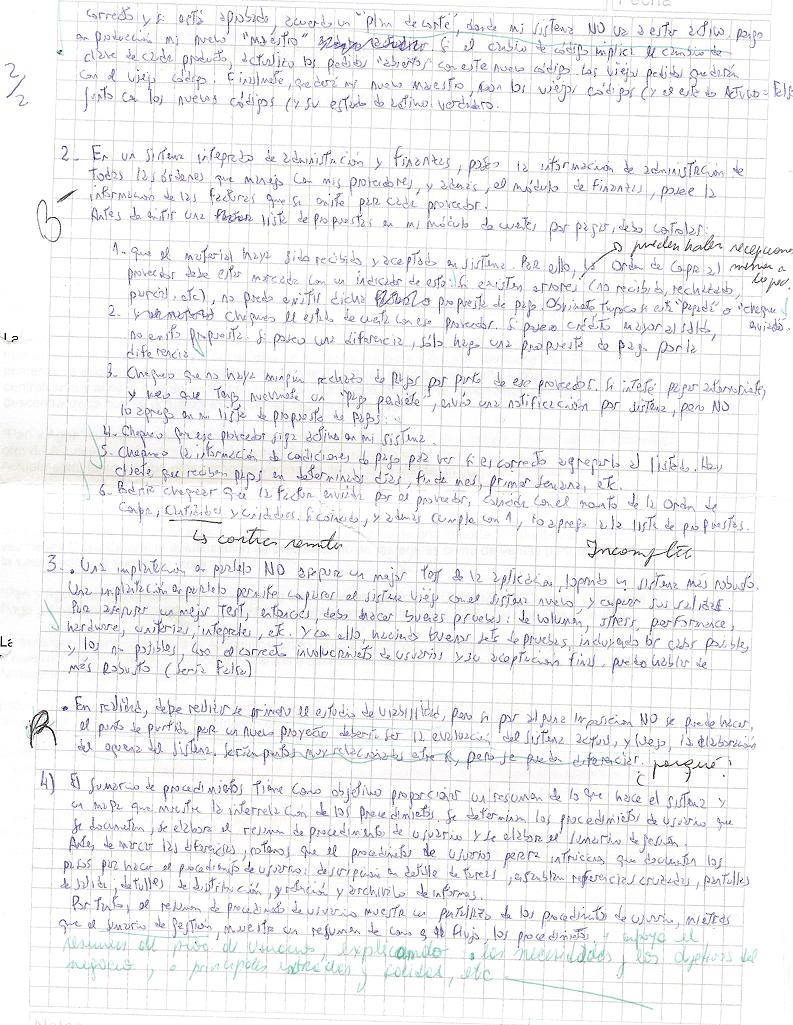 correcto y si está aprobado, acuerdo un "plan de corte", donde mi sistema NO va a estar activo, pongo
en producción mi nuevo "maestro" Si el cambio de código implica el cambio de
clave de cada producto, actualizo los pedidos "abiertos" con este nuevo código. Los viejos pedidos quedarán
con el viejo código. Finalmente, quedará mi nuevo maestro, con los viejos códigos (y el estado Activo = False
junto con los nuevos códigos (y su estado de activo: verdadero.
2/2
2- En un sistema integrado de administración y finanzas, poseo la información de administración de
todas las órdenes que manejo con mis proveedores, y además, el módulo de finanzas, posee la
información de las facturas que se emite para cada proveedor.
B-
Antes de emitir una lista de propuestas en mi módulo de cuentas por pagar, debo controlar:
pueden haber recepciones
menor a
lo ped.
1- Que el material haya sido recibido y aceptado en sistema. Por ello, la Orden de Compra al
proveedor debe estar marcada con un indicador de esto. Si existen errores (no recibido, rechazado,
parcial, etc), no puedo emitir dicha propuesta de pago. Obviamente tampoco si está "pagada" o "cheque
enviado.
2. chequeo el estado de cuenta con ese proveedor. Si poseo crédito mayor al saldo,
no emito propuesta. Si poseo una diferencia, sólo hago una propuesta de pago por la
diferencia
3. Chequeo que no haya ningún rechazo de pagos por parte de ese proveedor. Si intenté pagar anteriormente,
y veo que tengo nuevamente un "pago pendiente", envío una notificación por sistema, pero NO
lo agrego en mi lista de propuesta de pagos.
4. Chequeo que ese proveedor siga activo en mi sistema.
5. Chequeo la información de condiciones de pago para ver si es correcto agregarlo al listado. Hay
que reciben pagos en determinados días, fin de mes, primer semana, etc.
6. Podría chequear que la factura enviada por el proveedor, coincide con el monto de la Orden de
Compra, cantidades y unidades. Si coincide, y además cumple con 1, lo agrego a la lista de propuestas.
contra remito
Incompleto
3. • Una implantación en paralelo NO asegura un mejor test de la aplicación, logrando un sistema más robusto.
Una implantación en paralelo permite comparar el sistema viejo con el sistema nuevo, y comparar sus salidas.
Para asegurar un mejor Test, entonces, debo hacer buenas pruebas: de volumen, stress, performance,
hardware, unitarias, integrales, etc. Y con ello, haciendo buenos sets de pruebas, incluyendo los casos posibles,
y los no posibles, con el correcto involucramiento de usuarios y su aceptación final, puedo hablar de
más Robusto (Sería Falsa)
R
• En realidad, debe realizarse primero el estudio de viabilidad, pero si por alguna imposición NO se puede hacer,
el punto de partida para un nuevo proyecto debería ser la evaluación del sistema actual, y luego, la elaboración
del esquema del sistema. Serían puntos muy relacionados entre sí, pero se pueden diferenciar. ¿porqué?
4) El sumario de procedimientos tiene como objetivo proporcionar un resumen de lo que hace el sistema y
un mapa que muestre la interrelación de los procedimientos. Se determinan los procedimientos de usuario que
se documentan, se elabora el resumen de procedimiento de usuario y se elabora el sumario de gestión.
Antes de marcar las diferencias, notamos que el procedimiento de usuarios genera instrucciones que documentan los
pasos para hacer el procedimiento de usuario: descripción en detalle de tareas, establecen referencias cruzadas, pantallas
de salida, detalles de distribución, y retención y archivado de informes.
Por tanto, el resumen de procedimiento de usuario muestra un pantallazo de los procedimientos de usuario, mientras
que el sumario de gestión, muestra un resumen de como es el flujo, los procedimientos y apoya el
resumen de proc. de usuarios explicando los necesidades y los objetivos del
negocio, principales entradas y salidas, etc